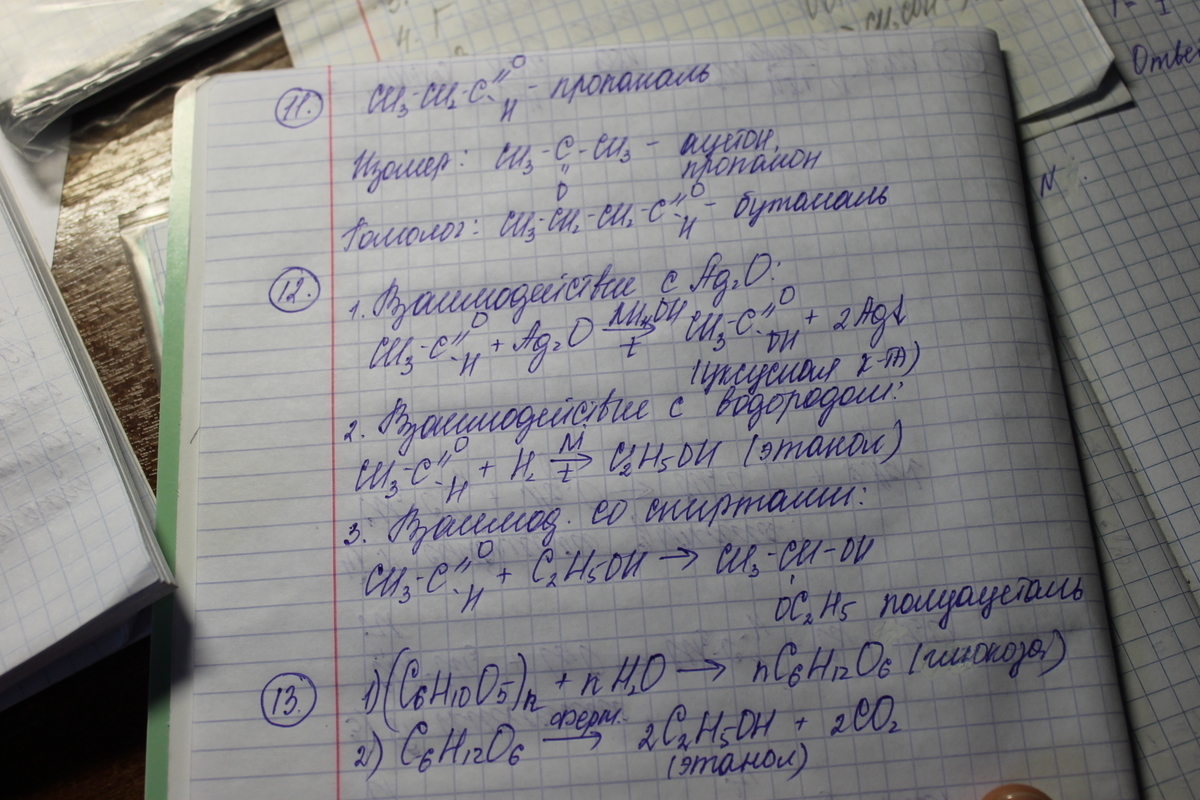 Н. Г
CH₃COH
Ответ
N
11. CH₃-CH₂-C=O-H - пропаналь
Изомер: CH₃-C-CH₃ - ацетон,
O пропанон
Гомолог: CH₃-CH₂-CH₂-C=O-H - бутаналь
12. 1. Взаимодействие с Ag₂O:
CH₃-C=O-H + Ag₂O NH₄OH→t CH₃-C=O-OH + 2Ag↓
(уксусная к-та)
2. Взаимодействие с водородом:
CH₃-C=O-H + H₂ Ni→t C₂H₅OH (этанол)
3. Взаимод. со спиртами:
CH₃-C=O-H + C₂H₅OH → CH₃-CH-OH
OC₂H₅ полуацеталь
13. 1) (C₆H₁₀O₅)n + nH₂O → nC₆H₁₂O₆ (глюкоза)
2) C₆H₁₂O₆ ферм.→ 2C₂H₅OH + 2CO₂
(этанол)